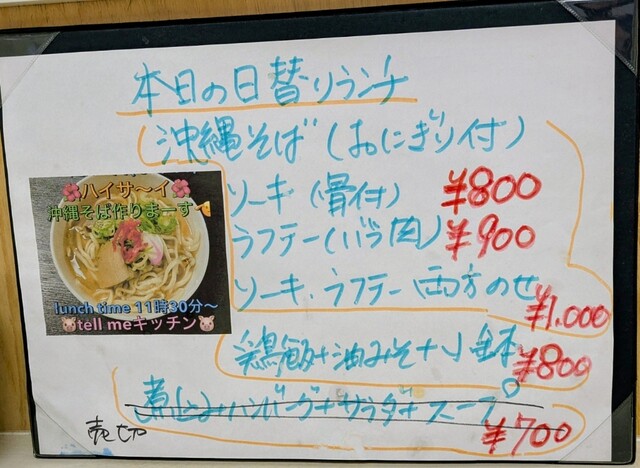 本日の日替りランチ
沖縄そば (おにぎり付)
ソーキ (骨付) ¥800
ラフテー (バラ肉) ¥900
ソーキ・ラフテー 両方のせ ¥1,000
鶏飯+油みそ+小鉢 ¥800
煮込みハンバーグ+サラダ+スープ ¥700
売切
ハイサ〜イ
沖縄そば作りまーす
lunch time 11時30分〜
tell meキッチン